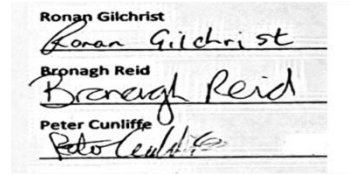 Ronan Gilchrist
Ronan Gilchrist
Bronagh Reid
Bronagh Reid
Peter Cunliffe
Peter Cunliffe